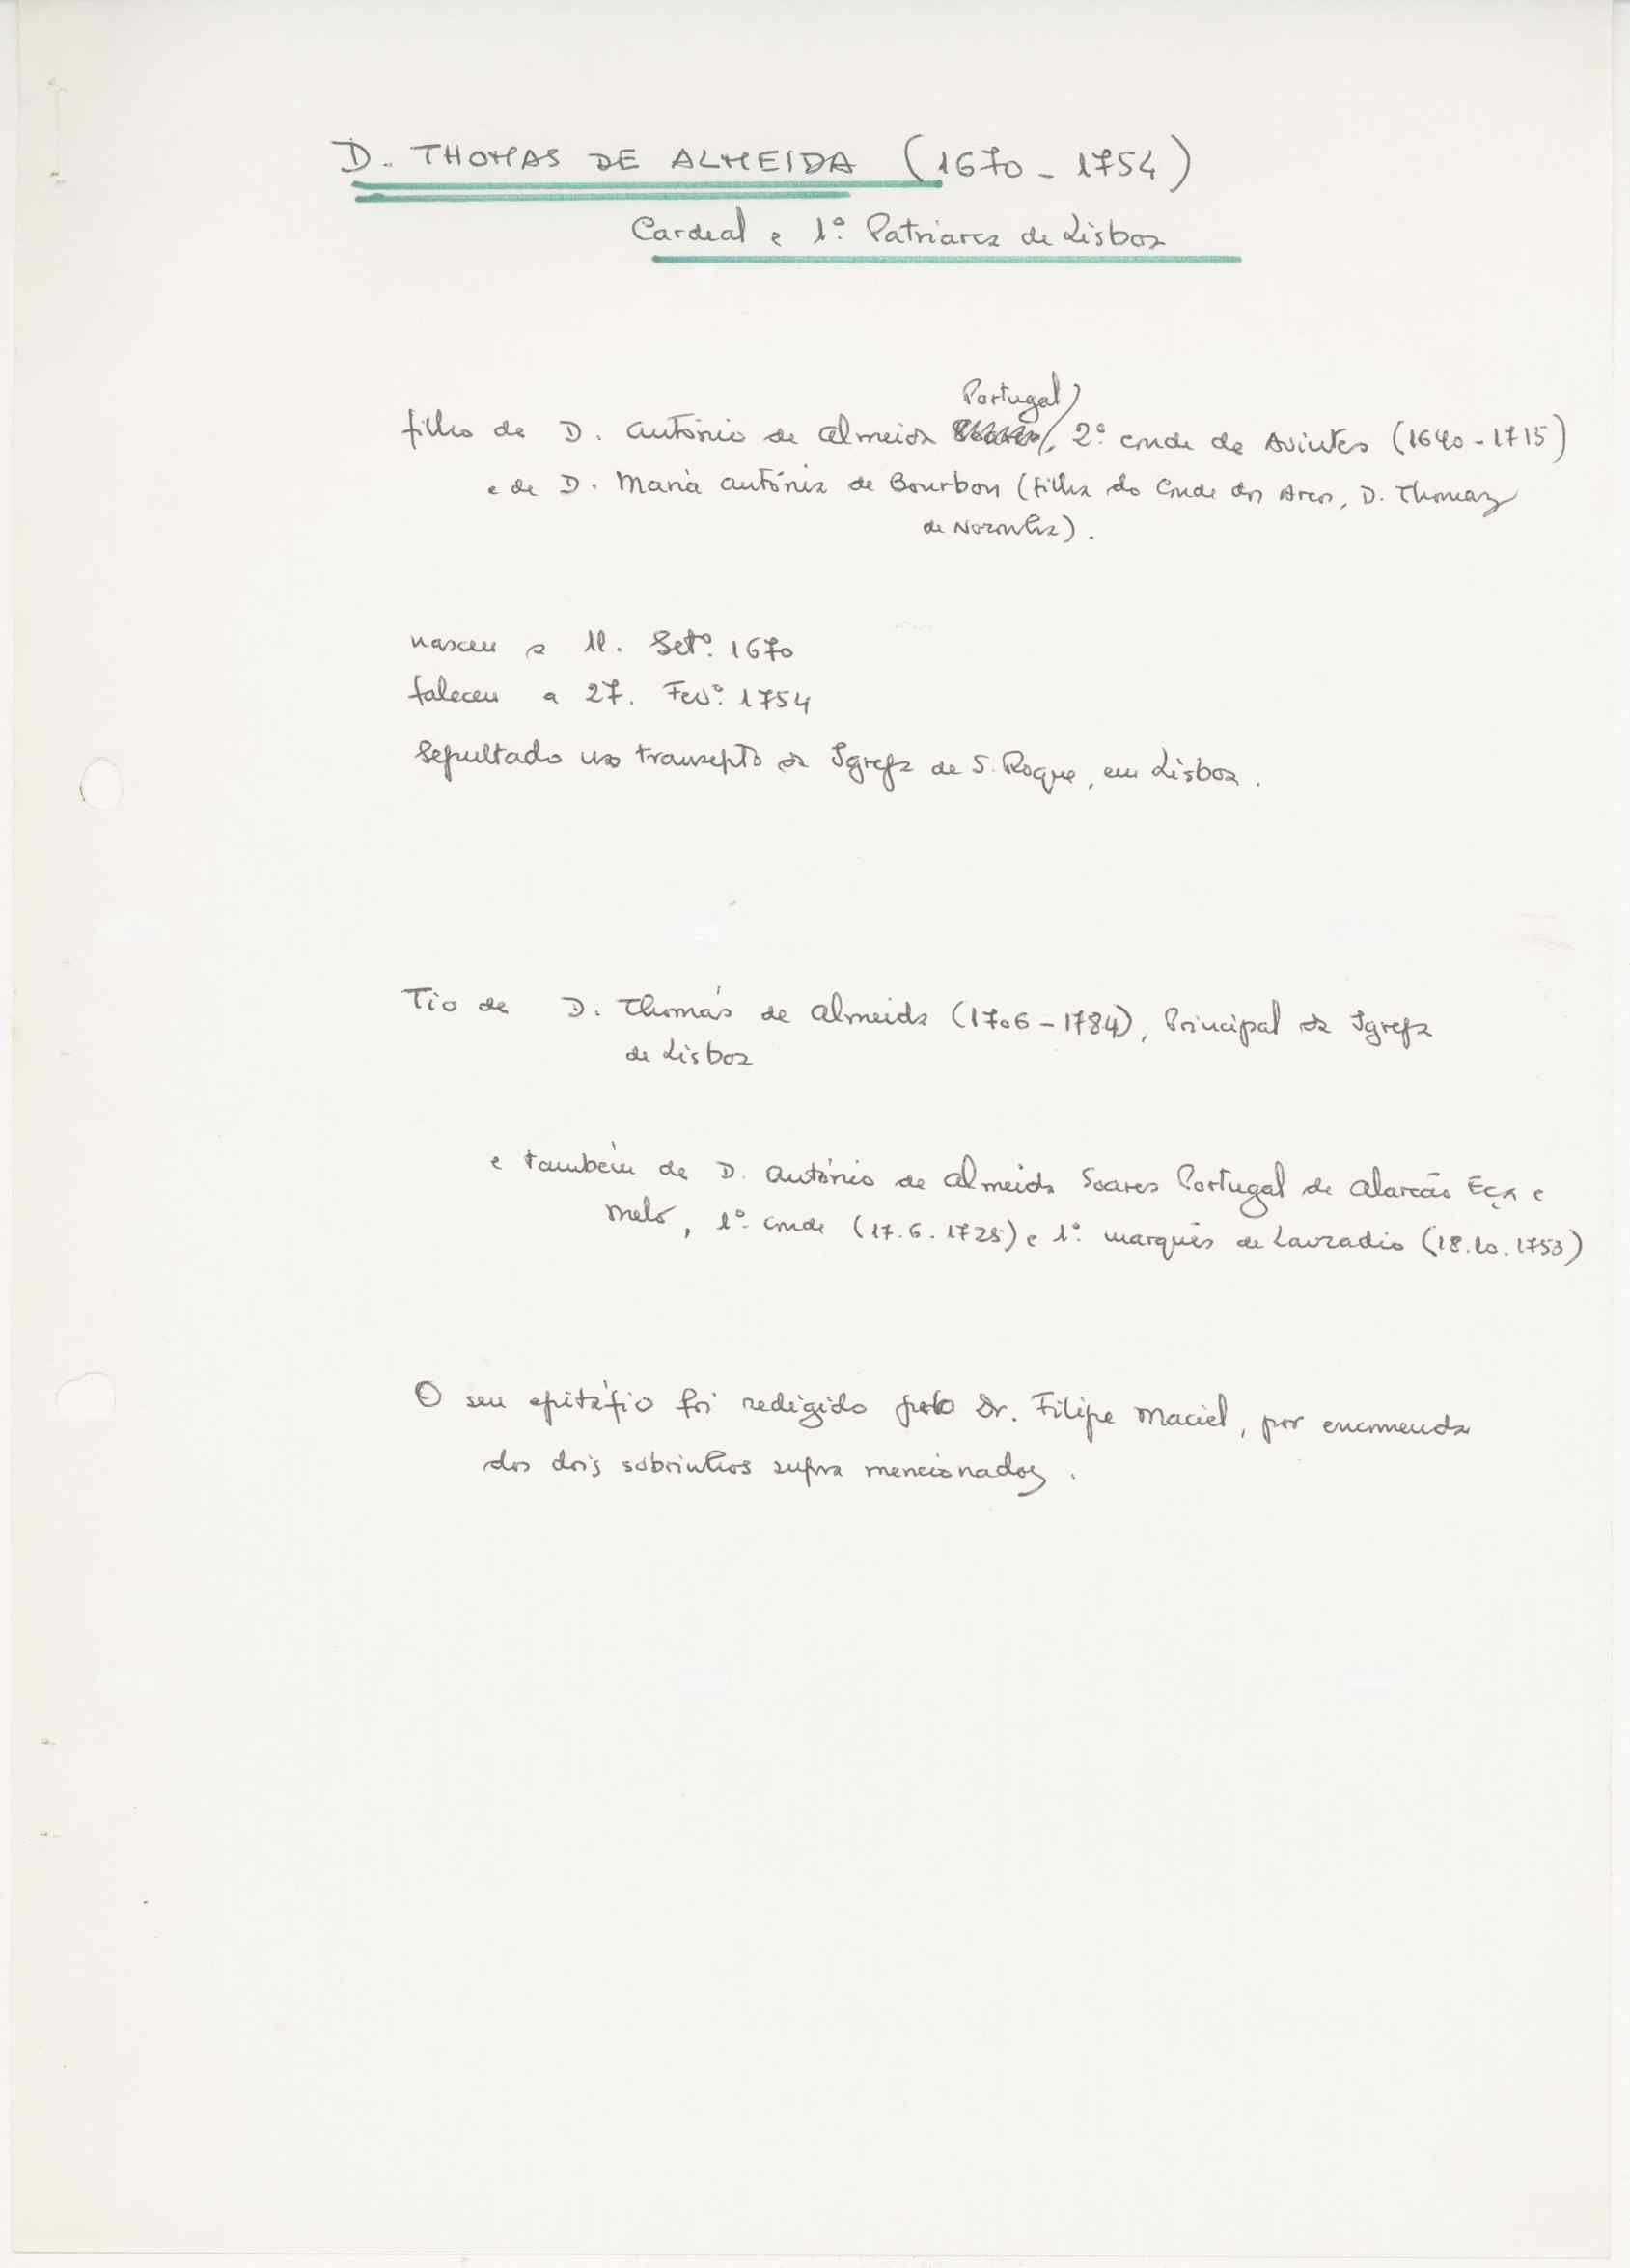 D. THOMAS DE ALMEIDA (1670 - 1754)
Cardeal e 1º. Patriarca de Lisboa
Portugal
filho de D. António de Almeida 2º. conde de Avintes (1640 - 1715)
e de D. Maria António de Bourbon (filha do Conde dos Arcos, D. Thomaz
de Noronha).
nasceu a 11. Setº. 1670
faleceu a 27. Fevº. 1754
Sepultado no transepto da Igreja de S. Roque, em Lisboa.
Tio de D. Thomás de Almeida (1706 - 1784), Principal da Igreja
de Lisboa
e também de D. António de Almeida Soares Portugal de Alarcão Eça e
Melo, 1º. conde (17.6.1725) e 1º. marquês de Lavradio (18.10.1753)
O seu epitáfio foi redigido pelo Dr. Filipe Maciel, por encomenda
dos dois sobrinhos supra mencionados.